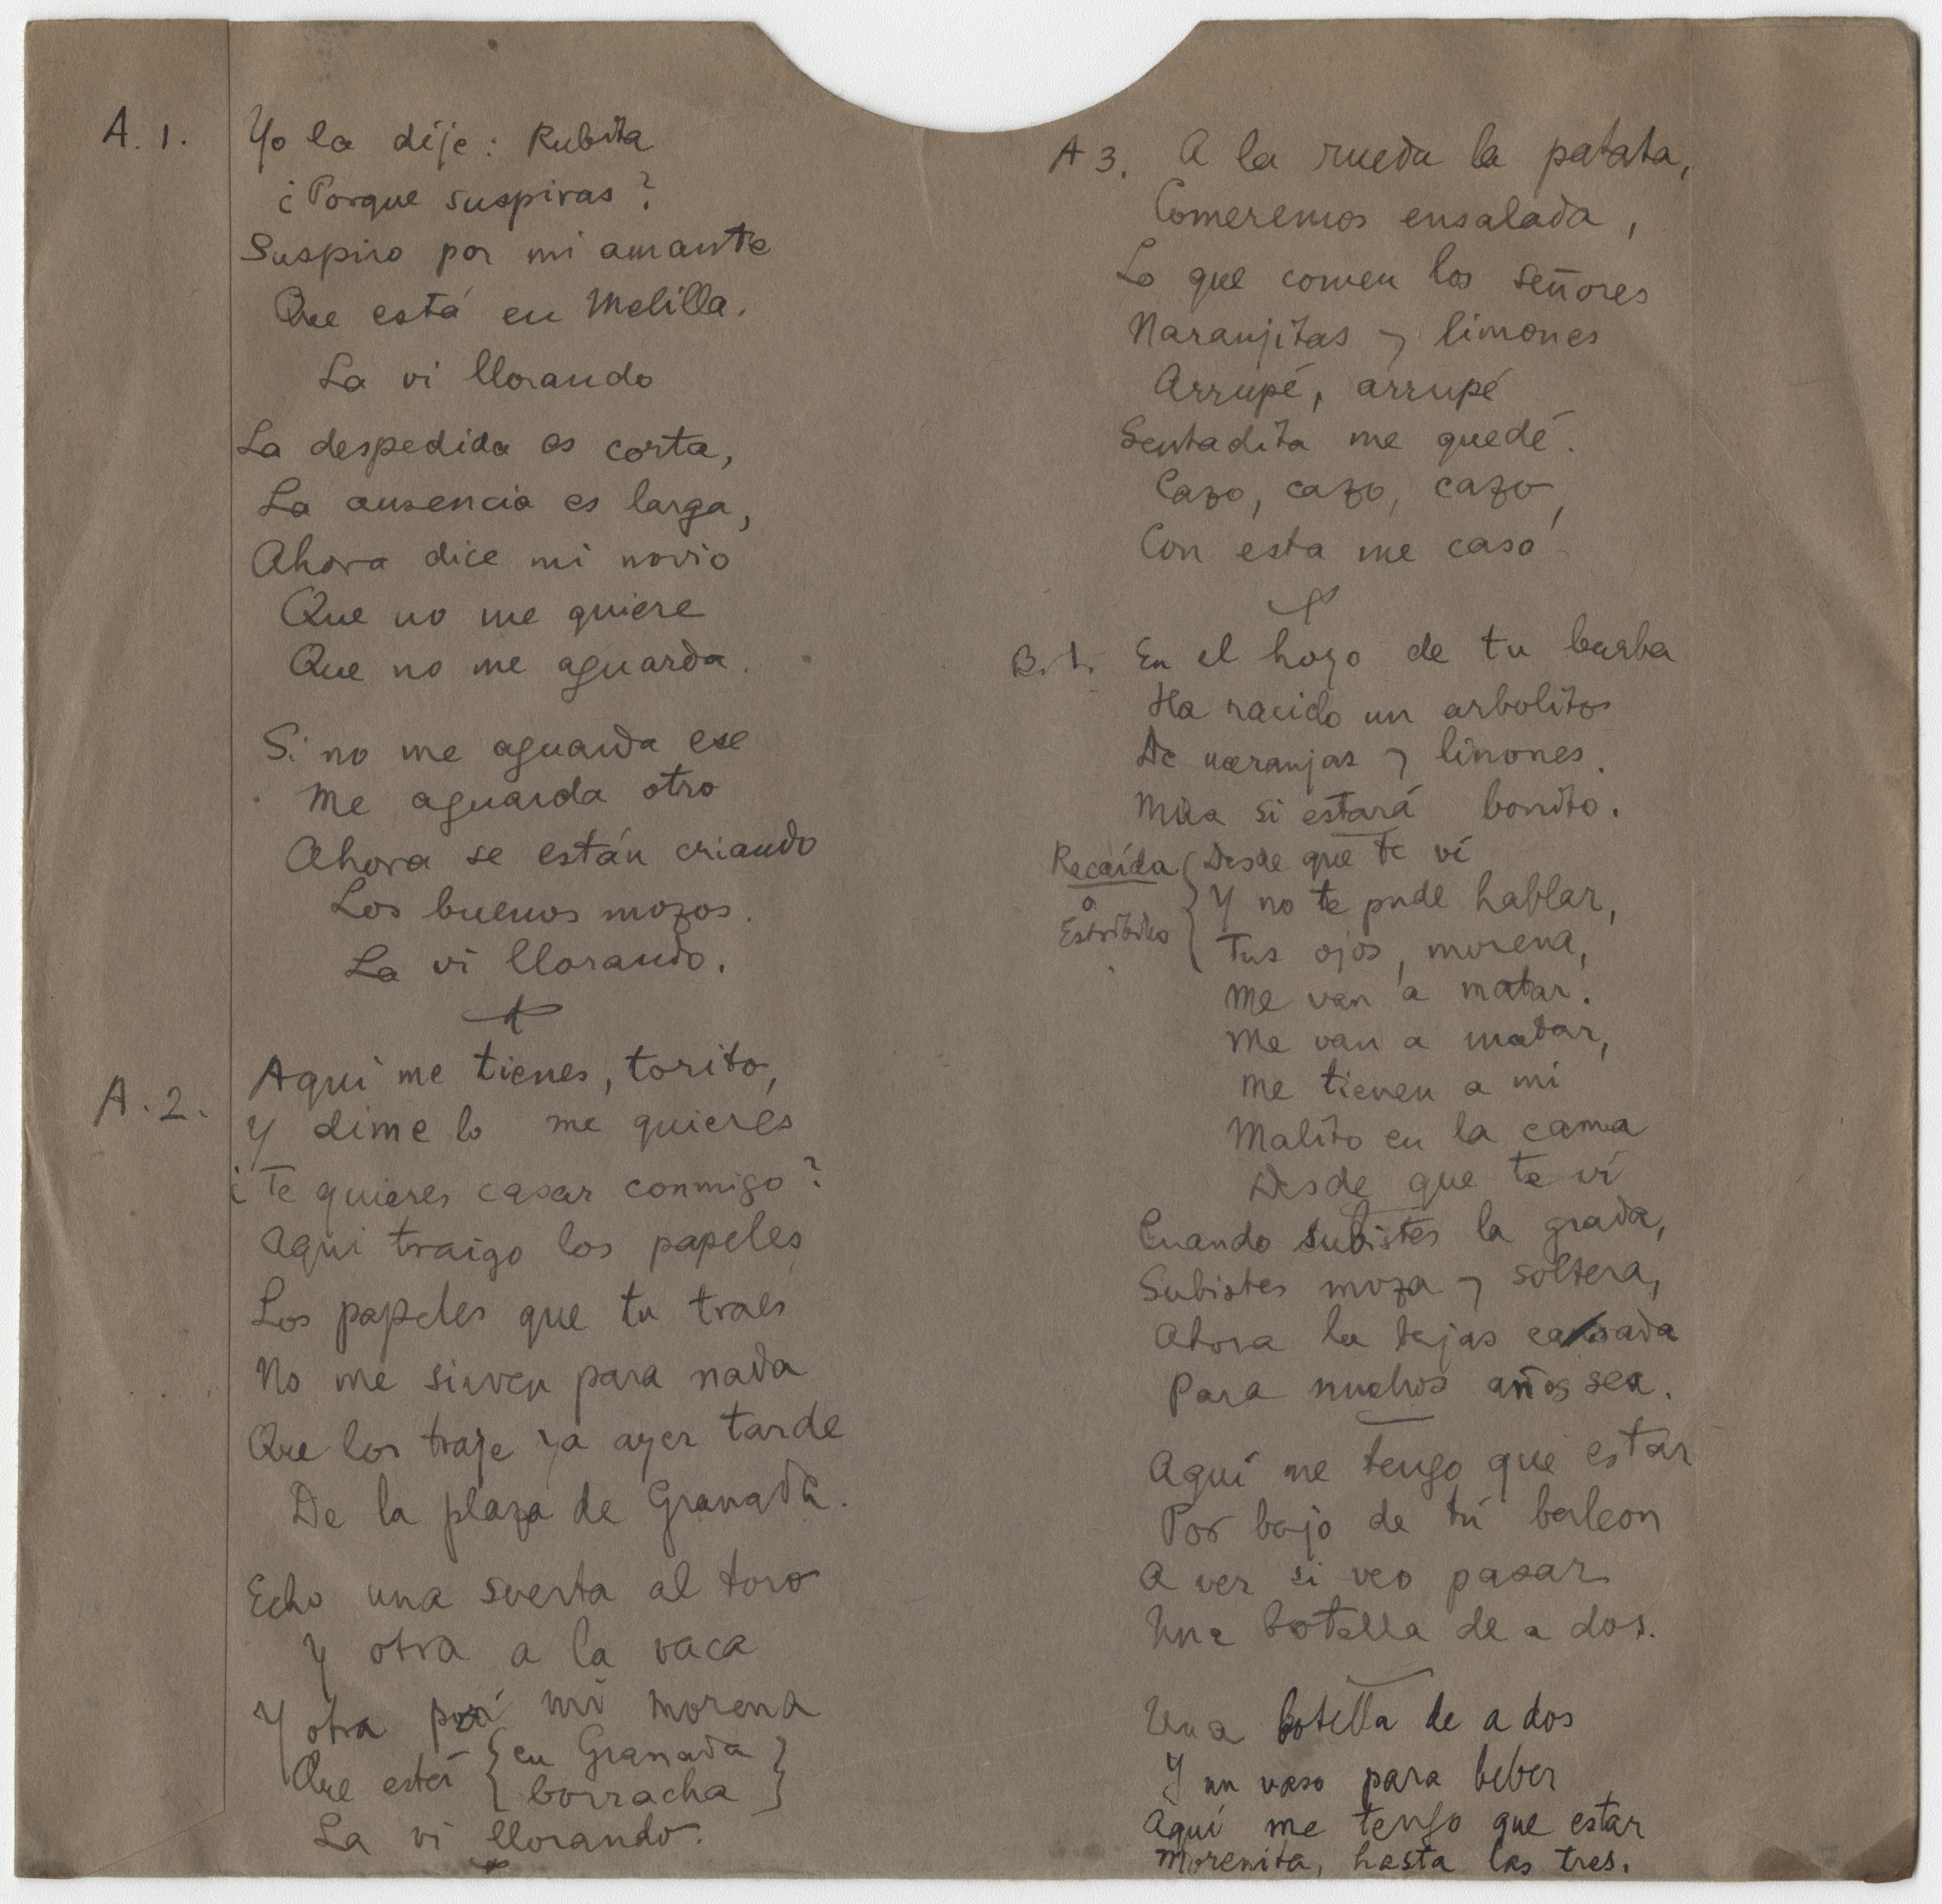 A. 1.
Yo la dije: Rubita
¿Porque suspiras?
Suspiro por mi amante
Que está en Melilla.
La vi llorando
La despedida es corta,
La ausencia es larga,
Ahora dice mi novio
Que no me quiere
Que no me aguarda.
Si no me aguarda ese
Me aguarda otro
Ahora se están criando
Los buenos mozos.
La vi llorando.
A. 2.
Aquí me tienes, torito,
Y dime lo me quieres
¿Te quieres casar conmigo?
Aqui traigo los papeles
Los papeles que tu traes
No me sirven para nada
Que los traje ya ayer tarde
De la plaza de Granada.
Echo una suerta al toro
Y otra a la vaca
Y otra pará mi morena
Que está { en Granada }
borracha
La vi llorando.
A 3. A la rueda la patata,
Comeremos ensalada,
Lo que comen los señores
Naranjitas y limones
Arrupé, arrupé
Sentadita me quedé.
Cazo, cazo, cazo,
Con esta me casó
B. 1. En el hozo de tu barba
Ha nacido un arbolito
De naranjas y limones.
Mira si estará bonito.
Recaída
o
Estribillo
{ Desde que te ví
Y no te pude hablar,
Tus ojos, morena,
Me van a matar.
Me van a matar,
Me tienen a mi
Malito en la cama
Desde que te ví
Cuando subistes la grada,
Subistes moza y soltera,
Ahora la bajas casada
Para muchos años sea.
Aquí me tengo que estar
Por bajo de tú balcon
A ver si veo pasar
Una botella de a dos.
Una botella de a dos
Y un vaso para beber
Aquí me tengo que estar
Morenita, hasta las tres.